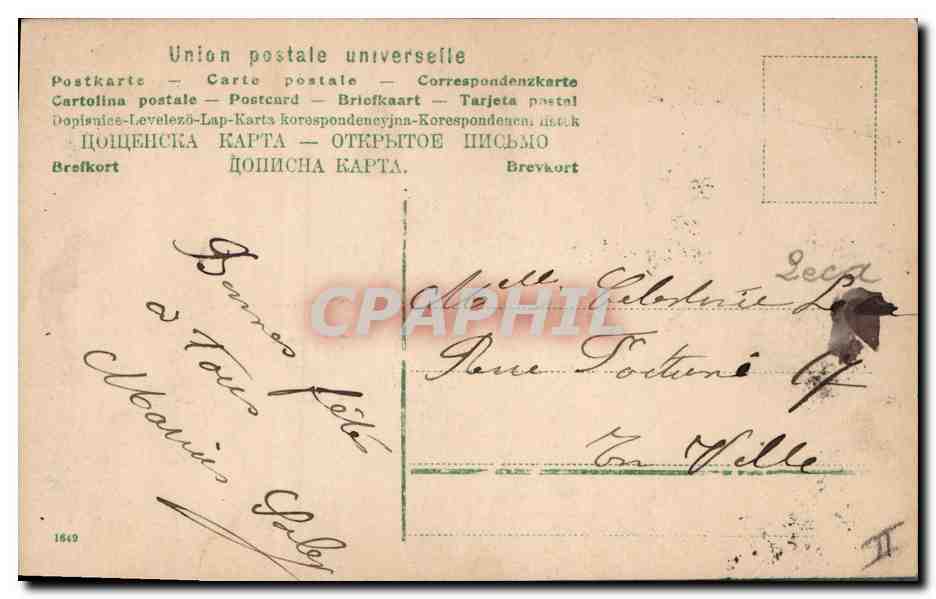 Union postale universelle
Postkarte — Carte postale — Correspondenzkarte
Cartolina postale — Postcard — Briefkaart — Tarjeta postal
Dopisnice-Levelező-Lap-Karta korespondencyjna-Korespondencni listek
ЦОЩЕНСКА КАРТА — ОТКРЫТОЕ ПИСЬМО
Brefkort ДОПИСНА КАРТА. Brevkort
Bonnes fêtes
a tous
Marius
Melle Celestine
Rue Fortuné 9
En Ville
CPAPHIL
1649
II